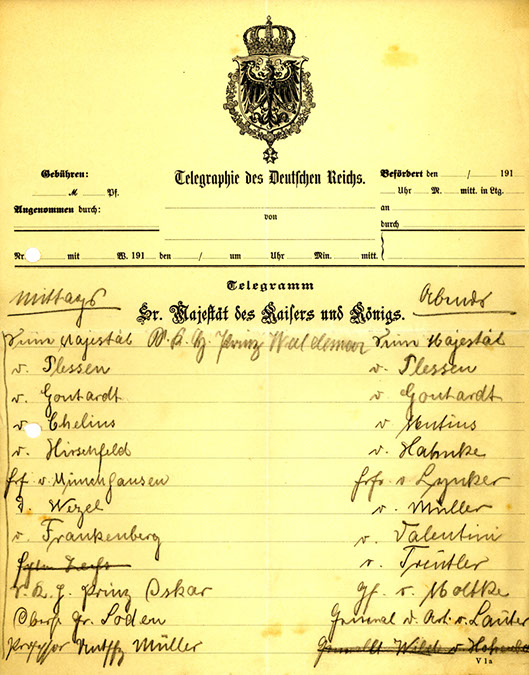 Gebühren:
M Pf.
Angenommen durch:
Telegraphie des Deutschen Reichs.
von
Befördert den / 191
Uhr M. mitt. in Ltg.
an
durch
Nr. mit W. 191 den / um Uhr Min. mitt.
Telegramm
Sr. Majestät des Kaisers und Königs.
Mittags
Seine Majestät
v. Plessen
v. Gontardt
v. Chelius
v. Hirschfeld
v. Münchhausen
v. Wezel
v. Frankenberg
Prinz Oskar
Gr. Soden
Professor Müller
Prinz Waldemar
Abends
Seine Majestät
v. Plessen
v. Gontardt
v. Mutius
v. Hahnke
Frh. v Lynker
v. Müller
v. Valentini
v. Treutler
Gf. v. Moltke
General d. Art. v. Lauter
V 1a